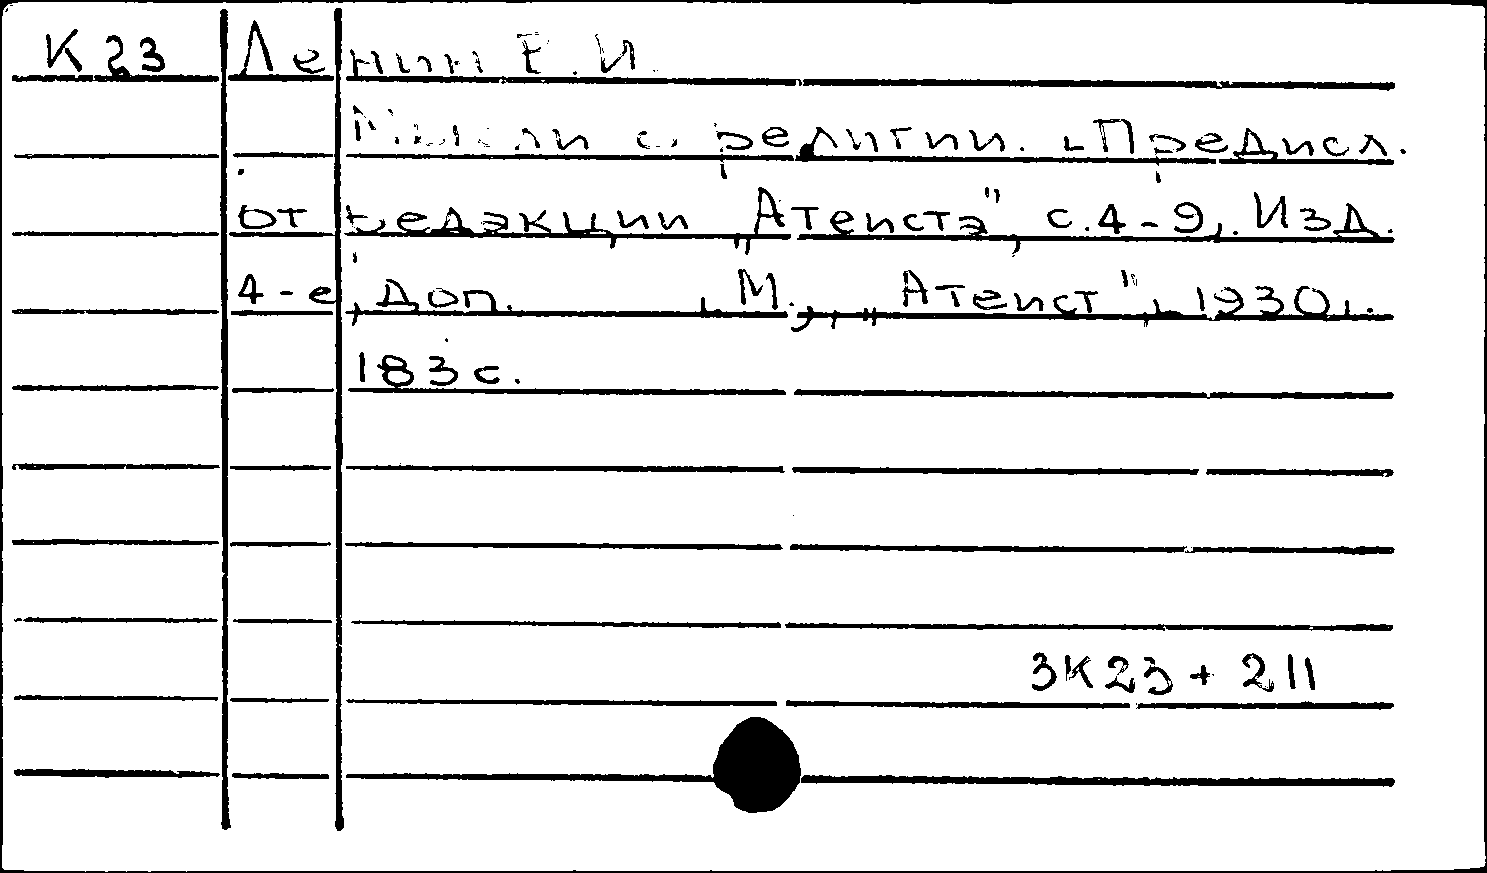 К 23 Ленин В. И.
Мысли о религии. [Предисл.
от редакции „Атеиста", с. 4-9]. Изд.
4-е, доп. [М.], „Атеист", [1930].
183 с.
3К23 + 211